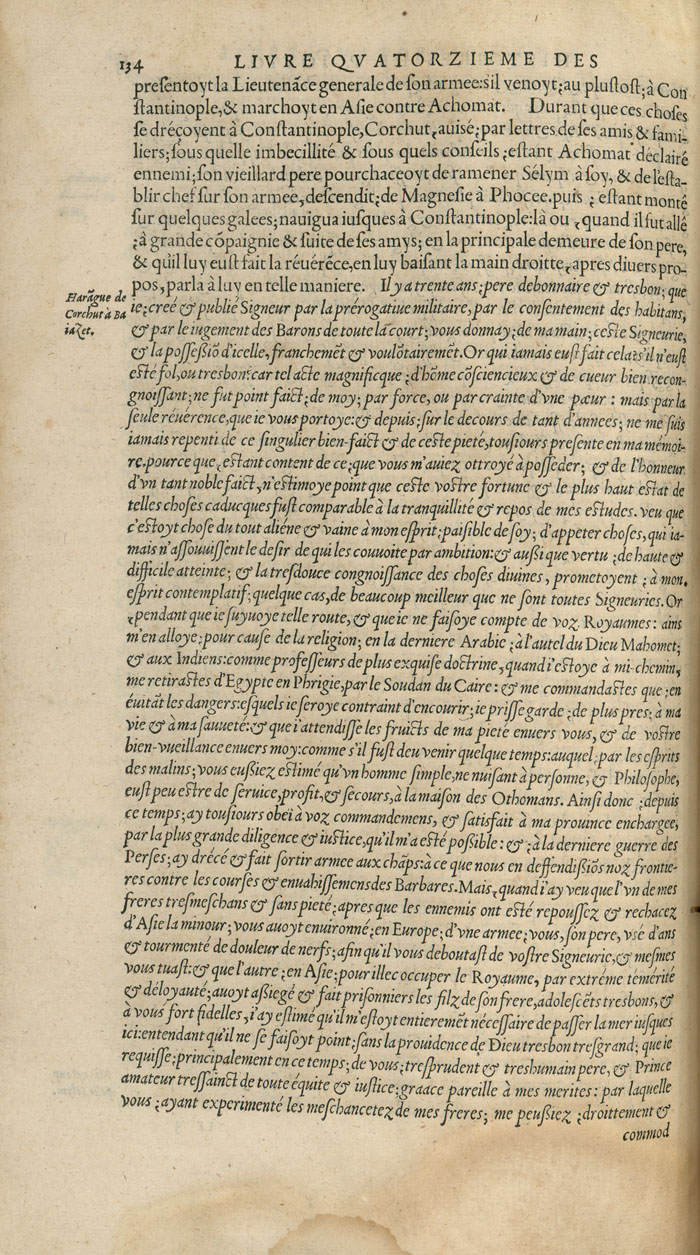 134 LIVRE QVATORZIEME DES
presentoyt la Lieutenãce generale de son armee:sil venoyt;au plustost;à Con
stantinople,& marchoyt en Asie contre Achomat. Durant que ces choses
se dréçoyent à Constantinople,Corchut,auisé;par lettres de ses amis & fami-
liers;sous quelle imbecillité & sous quels conseils ;estant Achomat déclairé
ennemi;son vieillard pere pourchaceoyt de ramener Sélym à soy, & de l'esta-
blir chef sur son armee,descendit;de Magnesie à Phocee.puis ; estant monté
sur quelques galees;nauigua iusques à Constantinople:là ou ,quand il fut allé
;à grande cõpaignie & suite de ses amys; en la principale demeure de son pere,
& qu'il luy eust fait la réuérẽce,en luy baisant la main droitte,apres diuers pro-
pos,parla à luy en telle maniere. Il y a trente ans;pere debonnaire & tresbon; que
Harãgue de
Corchut à Ba
iazet.
ie;creé & publié Signeur par la prérogatiue militaire,par le consentement des habitans,
& par le iugement des Barons de toute la court; vous donnay; de ma main; ceste Signeurie,
& la possessiõ d'icelle, franchemẽt & voulõtairemẽt. Or qui iamais eust fait cela:s'il n'eust
esté fol,ou tresbon:car tel acte magnificque ;d'hõme cõsciencieux & de cueur bien recon-
gnoissant; ne fut point faict;de moy; par force, ou par crainte d'vne pœur : mais par la
seule réuerence,que ie vous portoye:& depuis;sur le decours de tant d'annees; ne me suis
iamais repenti de ce singulier bien-faict & de ceste pieté,tousiours presente en ma mémoi-
re.pource que,estant content de ce;que vous m'auiez ottroyé à posseder; & de l'honneur
d'vn tant noble faict,n'estimoye point que ceste vostre fortune & le plus haut estat de
telles choses caducques fust comparable à la tranquillité & repos de mes estudes. veu que
c'estoyt chose du tout aliéne & vaine à mon esprit;paisible de soy; d'appeter choses, qui ia-
mais n'assouuissent le desir de qui les couuoite par ambition:& aussi que vertu ;de haute &
difficile atteinte; & la tresdouce congnoissance des choses diuines, prometoyent ;à mon,
esprit contemplatif;quelque cas,de beaucoup meilleur que ne sont toutes Signeuries. Or
,pendant que ie suyuoye telle route, & que ie ne faisoye compte de voz Royaumes: ains
m'en alloye;pour cause de la religion; en la derniere Arabie ;à l'autel du Dieu Mahomet;
& aux Indiens:comme professeurs de plus exquise doctrine, quand i'estoye à mi-chemin,
me retirastes d'Egypte en Phrigie,par le Soudan du Caire: & me commandastes que ;en
éuitãt les dangers:esquels ie seroye contraint d'encourir;ie prisse garde ;de plus pres;à ma
vie & à ma sauueté:& que i'attendisse les fruicts de ma pieté enuers vous, & de vostre
bien-vueillance enuers moy:comme s'il fust deu venir quelque temps:auquel;par les esprits
des malins; vous eussiez estimé qu'vn homme simple,ne nuisant à personne, & Philosophe,
eust peu estre de seruice,profit,& secours,à la maison des Othomans. Ainsi donc ;depuis
ce temps;ay tousiours obeï à voz commandemens, & satisfait à ma prouince enchargee,
par la plus grande diligence & iustice,qu'il m'a esté possible: & ;à la derniere guerre des
Perses;ay drécé & fait sortir armee aux chãps:à ce que nous en deffendissiõs noz frontie-
res contre les courses & enuahissemens des Barbares. Mais,quand i'ay veu que l'vn de mes
freres tresmeschans & sans pieté;apres que les ennemis ont esté repoussez & rechacez
d'Asie la minour; vous auoyt enuironné; en Europe; d'vne armee; vous, son pere, vsé d'ans
& tourmenté de douleur de nerfs;afin qu'il vous deboutast de vostre Signeurie,& mesmes
vous tuast:& que l'autre;en Asie;pour illec occuper le Royaume, par extréme témérité
& déloyauté;auoyt assiegé & fait prisonniers les filz de son frere,adolescẽts tresbons,&
à vous fort fidelles, i'ay estimé qu'il m'estoyt entieremẽt nécessaire de passer la mer iusques
ici:entendant qu'il ne se faisoyt point;sans la prouidence de Dieu tresbon tresgrand; que ie
requisse;principalement en ce temps;de vous;tresprudent & treshumain pere, & Prince
amateur tressainct de toute équite & iustice;graace pareille à mes merites: par laquelle
vous ;ayant experimenté les meschancetez de mes freres; me peussiez ;droittement &
commod